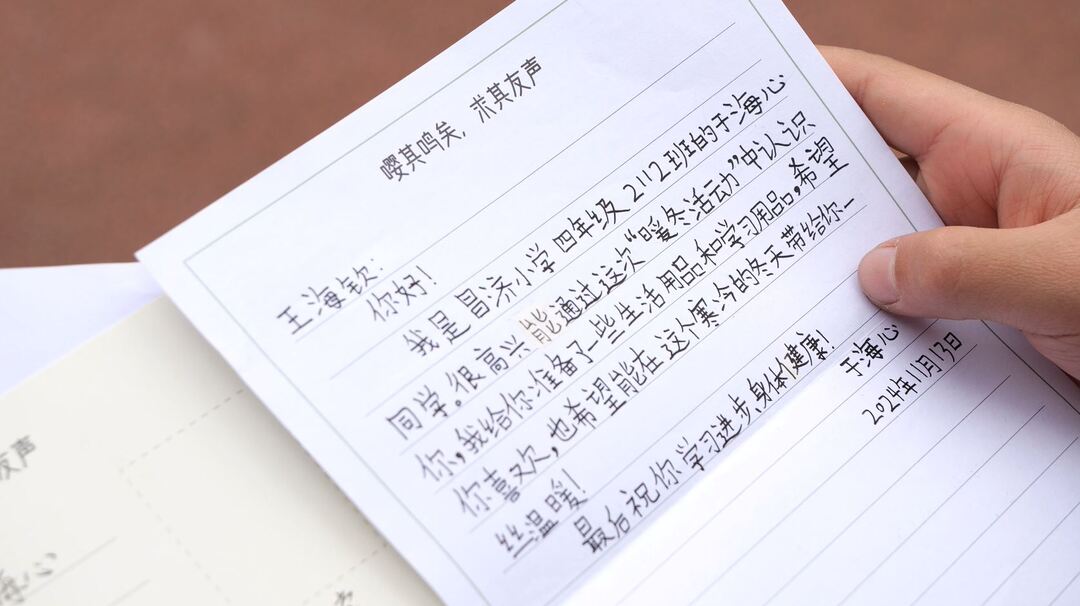 嘤其鸣矣，求其友声
王海钦：
你好！
我是昌济小学四年级2112班的于海心
同学。很高兴能通过这次“暖冬活动”中认识
你，我给你准备了一些生活用品和学习用品，希望
你喜欢，也希望能在这个寒冷的冬天带给你一
丝温暖！
最后祝你学习进步、身体健康！
于海心
2024年11月13日
友声
海心